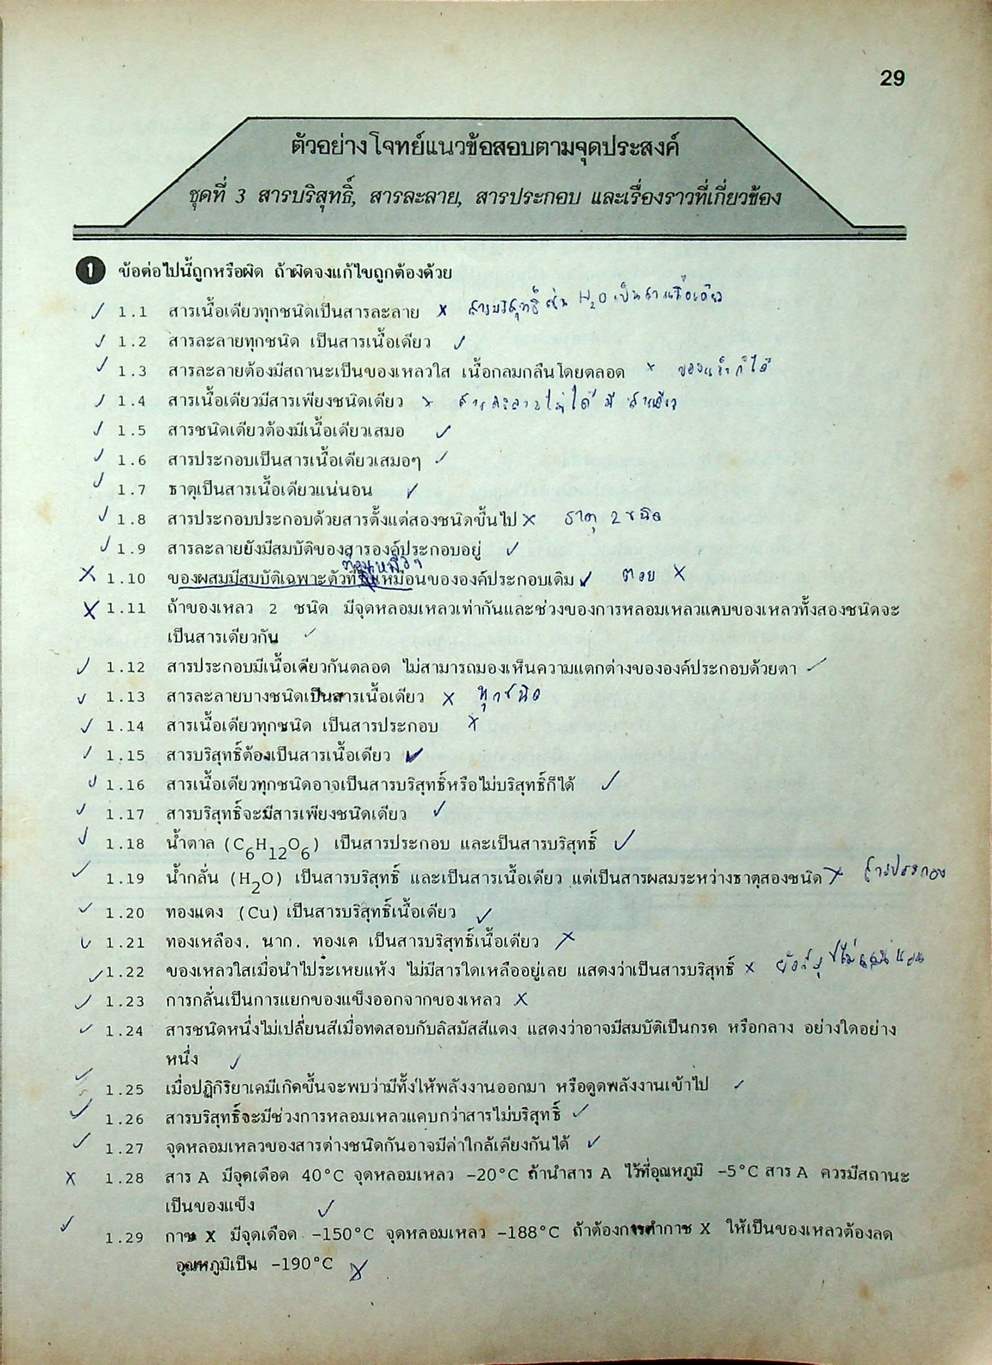 29
ตัวอย่างโจทย์แนวข้อสอบตามจุดประสงค์
ชุดที่ 3 สารบริสุทธิ์, สารละลาย, สารประกอบ และเรื่องราวที่เกี่ยวข้อง
1 ข้อต่อไปนี้ถูกหรือผิด ถ้าผิดจงแก้ไขถูกต้องด้วย
✓ 1.1 สารเนื้อเดียวทุกชนิดเป็นสารละลาย × สารบริสุทธิ์ เช่น H₂O เป็นสารเนื้อเดียว
✓ 1.2 สารละลายทุกชนิด เป็นสารเนื้อเดียว ✓
✓ 1.3 สารละลายต้องมีสถานะเป็นของเหลวใส เนื้อกลมกลืนโดยตลอด × ของแข็งก็ได้
✓ 1.4 สารเนื้อเดียวมีสารเพียงชนิดเดียว × สารละลายไม่ได้มี สารเดียว
✓ 1.5 สารชนิดเดียวต้องมีเนื้อเดียวเสมอ ✓
✓ 1.6 สารประกอบเป็นสารเนื้อเดียวเสมอๆ ✓
✓ 1.7 ธาตุเป็นสารเนื้อเดียวแน่นอน ✓
✓ 1.8 สารประกอบประกอบด้วยสารตั้งแต่สองชนิดขึ้นไป × ธาตุ 2 ชนิด
✓ 1.9 สารละลายยังมีสมบัติของสารองค์ประกอบอยู่ ✓
× 1.10 ของผสมมีสมบัติเฉพาะตัวที่ไม่เหมือนขององค์ประกอบเดิม ✓ ตอบ ×
× 1.11 ถ้าของเหลว 2 ชนิด มีจุดหลอมเหลวเท่ากันและช่วงของการหลอมเหลวแคบของเหลวทั้งสองชนิดจะ
เป็นสารเดียวกัน ✓
✓ 1.12 สารประกอบมีเนื้อเดียวกันตลอด ไม่สามารถมองเห็นความแตกต่างขององค์ประกอบด้วยตา ✓
✓ 1.13 สารละลายบางชนิดเป็นสารเนื้อเดียว × ทุกชนิด
✓ 1.14 สารเนื้อเดียวทุกชนิด เป็นสารประกอบ ×
✓ 1.15 สารบริสุทธิ์ต้องเป็นสารเนื้อเดียว ✓
✓ 1.16 สารเนื้อเดียวทุกชนิดอาจเป็นสารบริสุทธิ์หรือไม่บริสุทธิ์ก็ได้ ✓
✓ 1.17 สารบริสุทธิ์จะมีสารเพียงชนิดเดียว ✓
✓ 1.18 น้ำตาล (C₆H₁₂O₆) เป็นสารประกอบ และเป็นสารบริสุทธิ์ ✓
✓ 1.19 น้ำกลั่น (H₂O) เป็นสารบริสุทธิ์ และเป็นสารเนื้อเดียว แต่เป็นสารผสมระหว่างธาตุสองชนิด × สารประกอบ
✓ 1.20 ทองแดง (Cu) เป็นสารบริสุทธิ์เนื้อเดียว ✓
✓ 1.21 ทองเหลือง, นาก, ทองเค เป็นสารบริสุทธิ์เนื้อเดียว ×
✓ 1.22 ของเหลวใสเมื่อนำไประเหยแห้ง ไม่มีสารใดเหลืออยู่เลย แสดงว่าเป็นสารบริสุทธิ์ ×
✓ 1.23 การกลั่นเป็นการแยกของแข็งออกจากของเหลว ×
✓ 1.24 สารชนิดหนึ่งไม่เปลี่ยนสีเมื่อทดสอบกับลิสมัสสีแดง แสดงว่าอาจมีสมบัติเป็นกรด หรือกลาง อย่างใดอย่าง
หนึ่ง ✓
✓ 1.25 เมื่อปฏิกิริยาเคมีเกิดขึ้นจะพบว่ามีทั้งให้พลังงานออกมา หรือดูดพลังงานเข้าไป ✓
✓ 1.26 สารบริสุทธิ์จะมีช่วงการหลอมเหลวแคบกว่าสารไม่บริสุทธิ์ ✓
✓ 1.27 จุดหลอมเหลวของสารต่างชนิดกันอาจมีค่าใกล้เคียงกันได้ ✓
× 1.28 สาร A มีจุดเดือด 40°C จุดหลอมเหลว -20°C ถ้านำสาร A ไว้ที่อุณหภูมิ -5°C สาร A ควรมีสถานะ
เป็นของแข็ง ✓
✓ 1.29 กาซ X มีจุดเดือด -150°C จุดหลอมเหลว -188°C ถ้าต้องการทำกาซ X ให้เป็นของเหลวต้องลด
อุณหภูมิเป็น -190°C ×